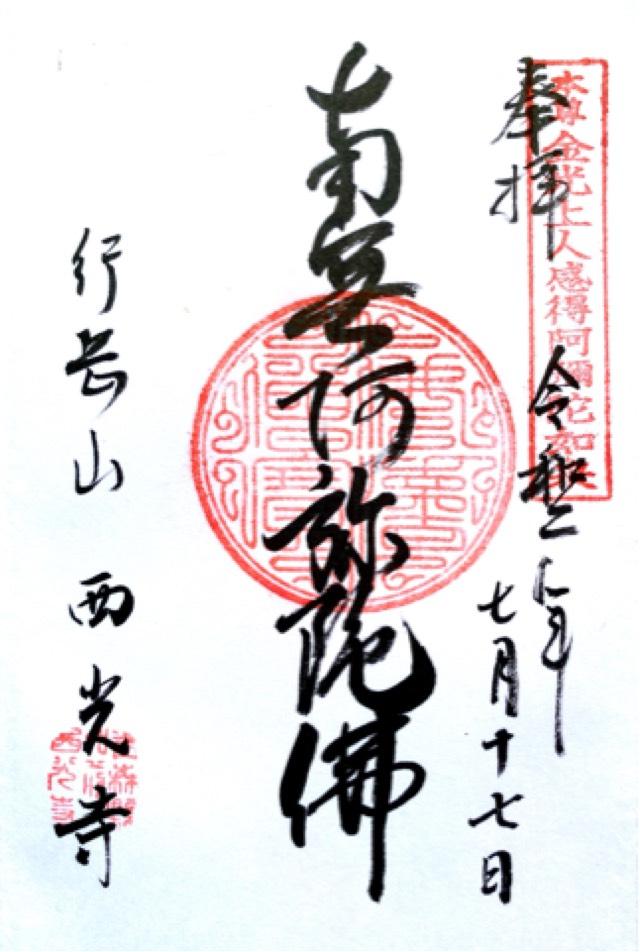 本尊金光上人感得阿彌陀如来
奉拝 令和二年
七月十七日
南無阿弥陀佛
行岳山 西光寺